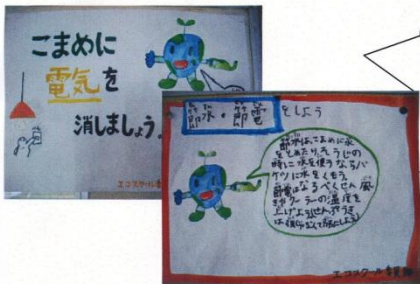 こまめに
電気を
消しましょう。
エコスクール委員
節水・節電をしよう
節水は、こまめに水
をとめたり、そうじの
時に水を使うならバ
ケツに水をくもう。
節電はなるべくせん風
きやクーラーの温度を
上げよう
エコスクール委員